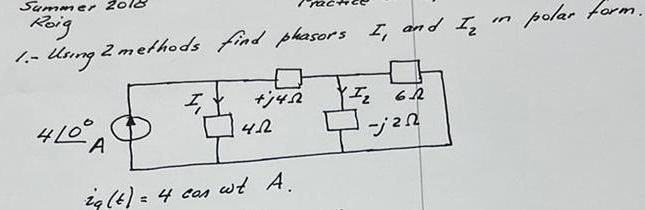 Summer 2018 Practice
Roig
1.- Using 2 methods find phasors I₁ and I₂ in polar form.
I₁ +j4Ω I₂ 6Ω
4∠0° A 4Ω -j2Ω
ig(t) = 4 cos ωt A.